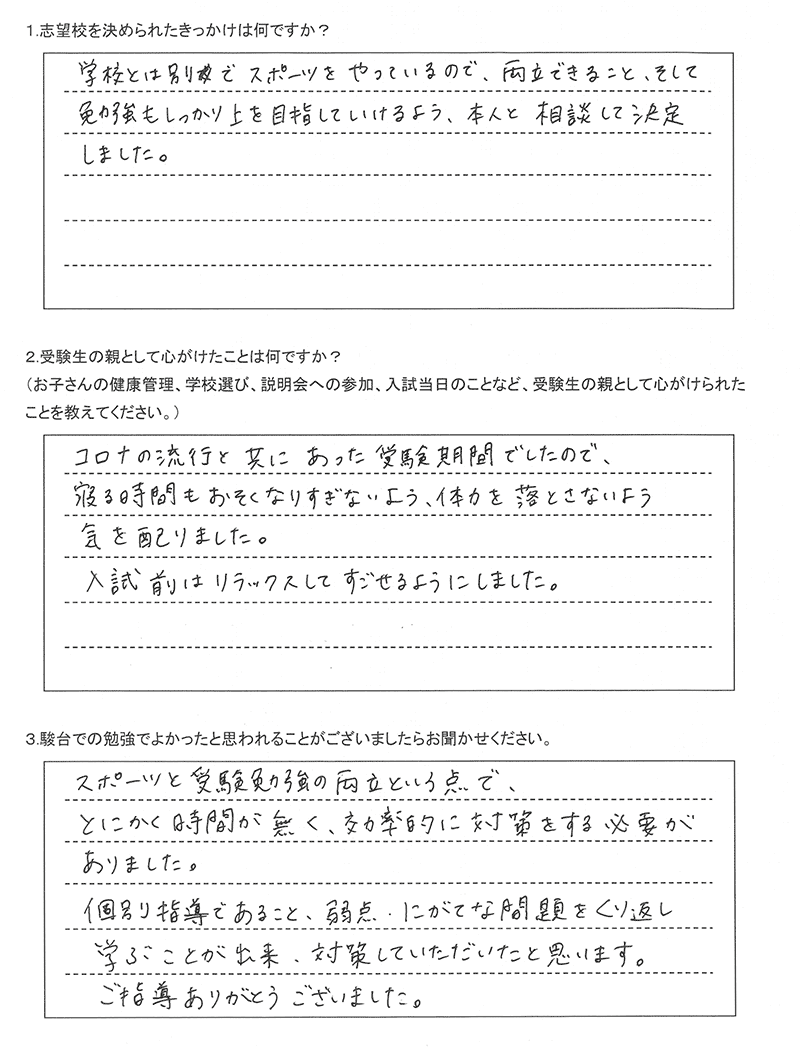 1.志望校を決められたきっかけは何ですか？
学校とは別でスポーツをやっているので、両立できること、そして
勉強もしっかり上を目指していけるよう、本人と相談して決定
しました。
２.受験生の親として心がけたことは何ですか？
（お子さんの健康管理、学校選び、説明会への参加、入試当日のことなど、受験生の親として心がけられた
ことを教えてください。）
コロナの流行と共にあった受験期間でしたので、
寝る時間もおそくなりすぎないよう、体力を落とさないよう
気を配りました。
入試前はリラックスしてすごせるようにしました。
３.駿台での勉強でよかったと思われることがございましたらお聞かせください。
スポーツと受験勉強の両立という点で、
とにかく時間が無く、効率的に対策をする必要が
ありました。
個別指導であること、弱点・にがてな問題をくり返し
学ぶことが出来、対策していただいたと思います。
ご指導ありがとうございました。